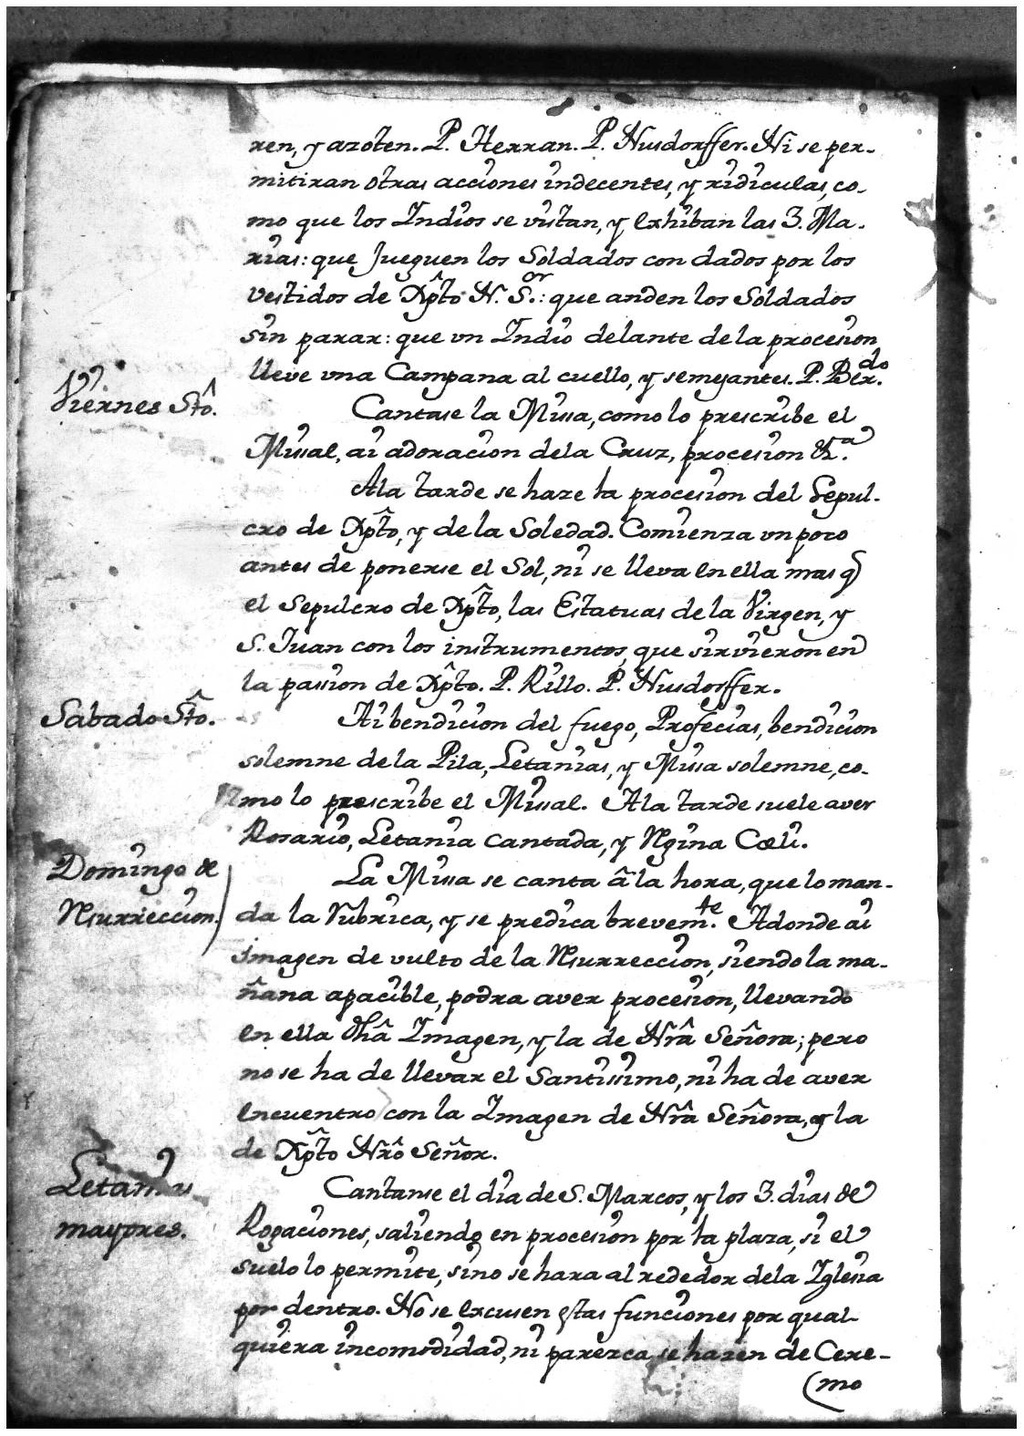 ren, y azoten. P. Herran. P. Nusdorffer. Ni se per-
mitiran otras acciones indecentes, y ridiculas, co-
mo que los Indios se vistan, y exhiban las 3. Ma-
rias: que jueguen los Soldados con dados por los
vestidos de Xp̂to N. S.or: que anden los Soldados
sin parar: que vn Indio delante de la procesion
lleve vna Campana al cuello, y semejantes. P. Ber.do
Viernes Stô.
Cantase la Missa, como lo prescribe el
Missal, ai adoracion dela Cruz, procesion &.a
Ala tarde se haze la procesion del Sepul-
cro de Xp̂to, y de la Soledad. Comienza vn poco
antes de ponerse el Sol, ni se lleva en ella mas q̃
el Sepulcro de Xp̂to, las Estatuas de la Virgen, y
S. Juan con los instrumentos, que sirvieron en
la passion de Xp̂to. P. Rillo. P. Nusdorffer.
Sabado Stô.
Ai bendicion del fuego, Profecias, bendicion
solemne de la Pila, Letanias, y Missa solemne, co-
mo lo prescribe el Missal. Ala tarde suele aver
Rosario, Letania cantada, y Regina Cœli.
Domingo de
Resurreccion.
La Missa se canta â la hora, que lo man-
da la Rubrica, y se predica brevem.te Adonde ai
imagen de vulto de la Resurreccion, siendo la ma-
ñana apacible, podra aver procesion, llevando
en ella dhâ Imagen, y la de Nrâ Señora; pero
no se ha de llevar el Santissimo, ni ha de aver
encuentro con la Imagen de Nrâ Señora, y la
de Xp̂to Nrô Señor.
Letanias
mayores.
Cantanse el dia de S. Marcos, y los 3. dias de
Rogaciones, saliendo en procesion por la plaza, si el
suelo lo permite, sino se hara al rededor dela Iglesia
por dentro. No se excusen estas funciones por qual-
quiera incomodidad, ni parezca, se hazen de Cere-
mo